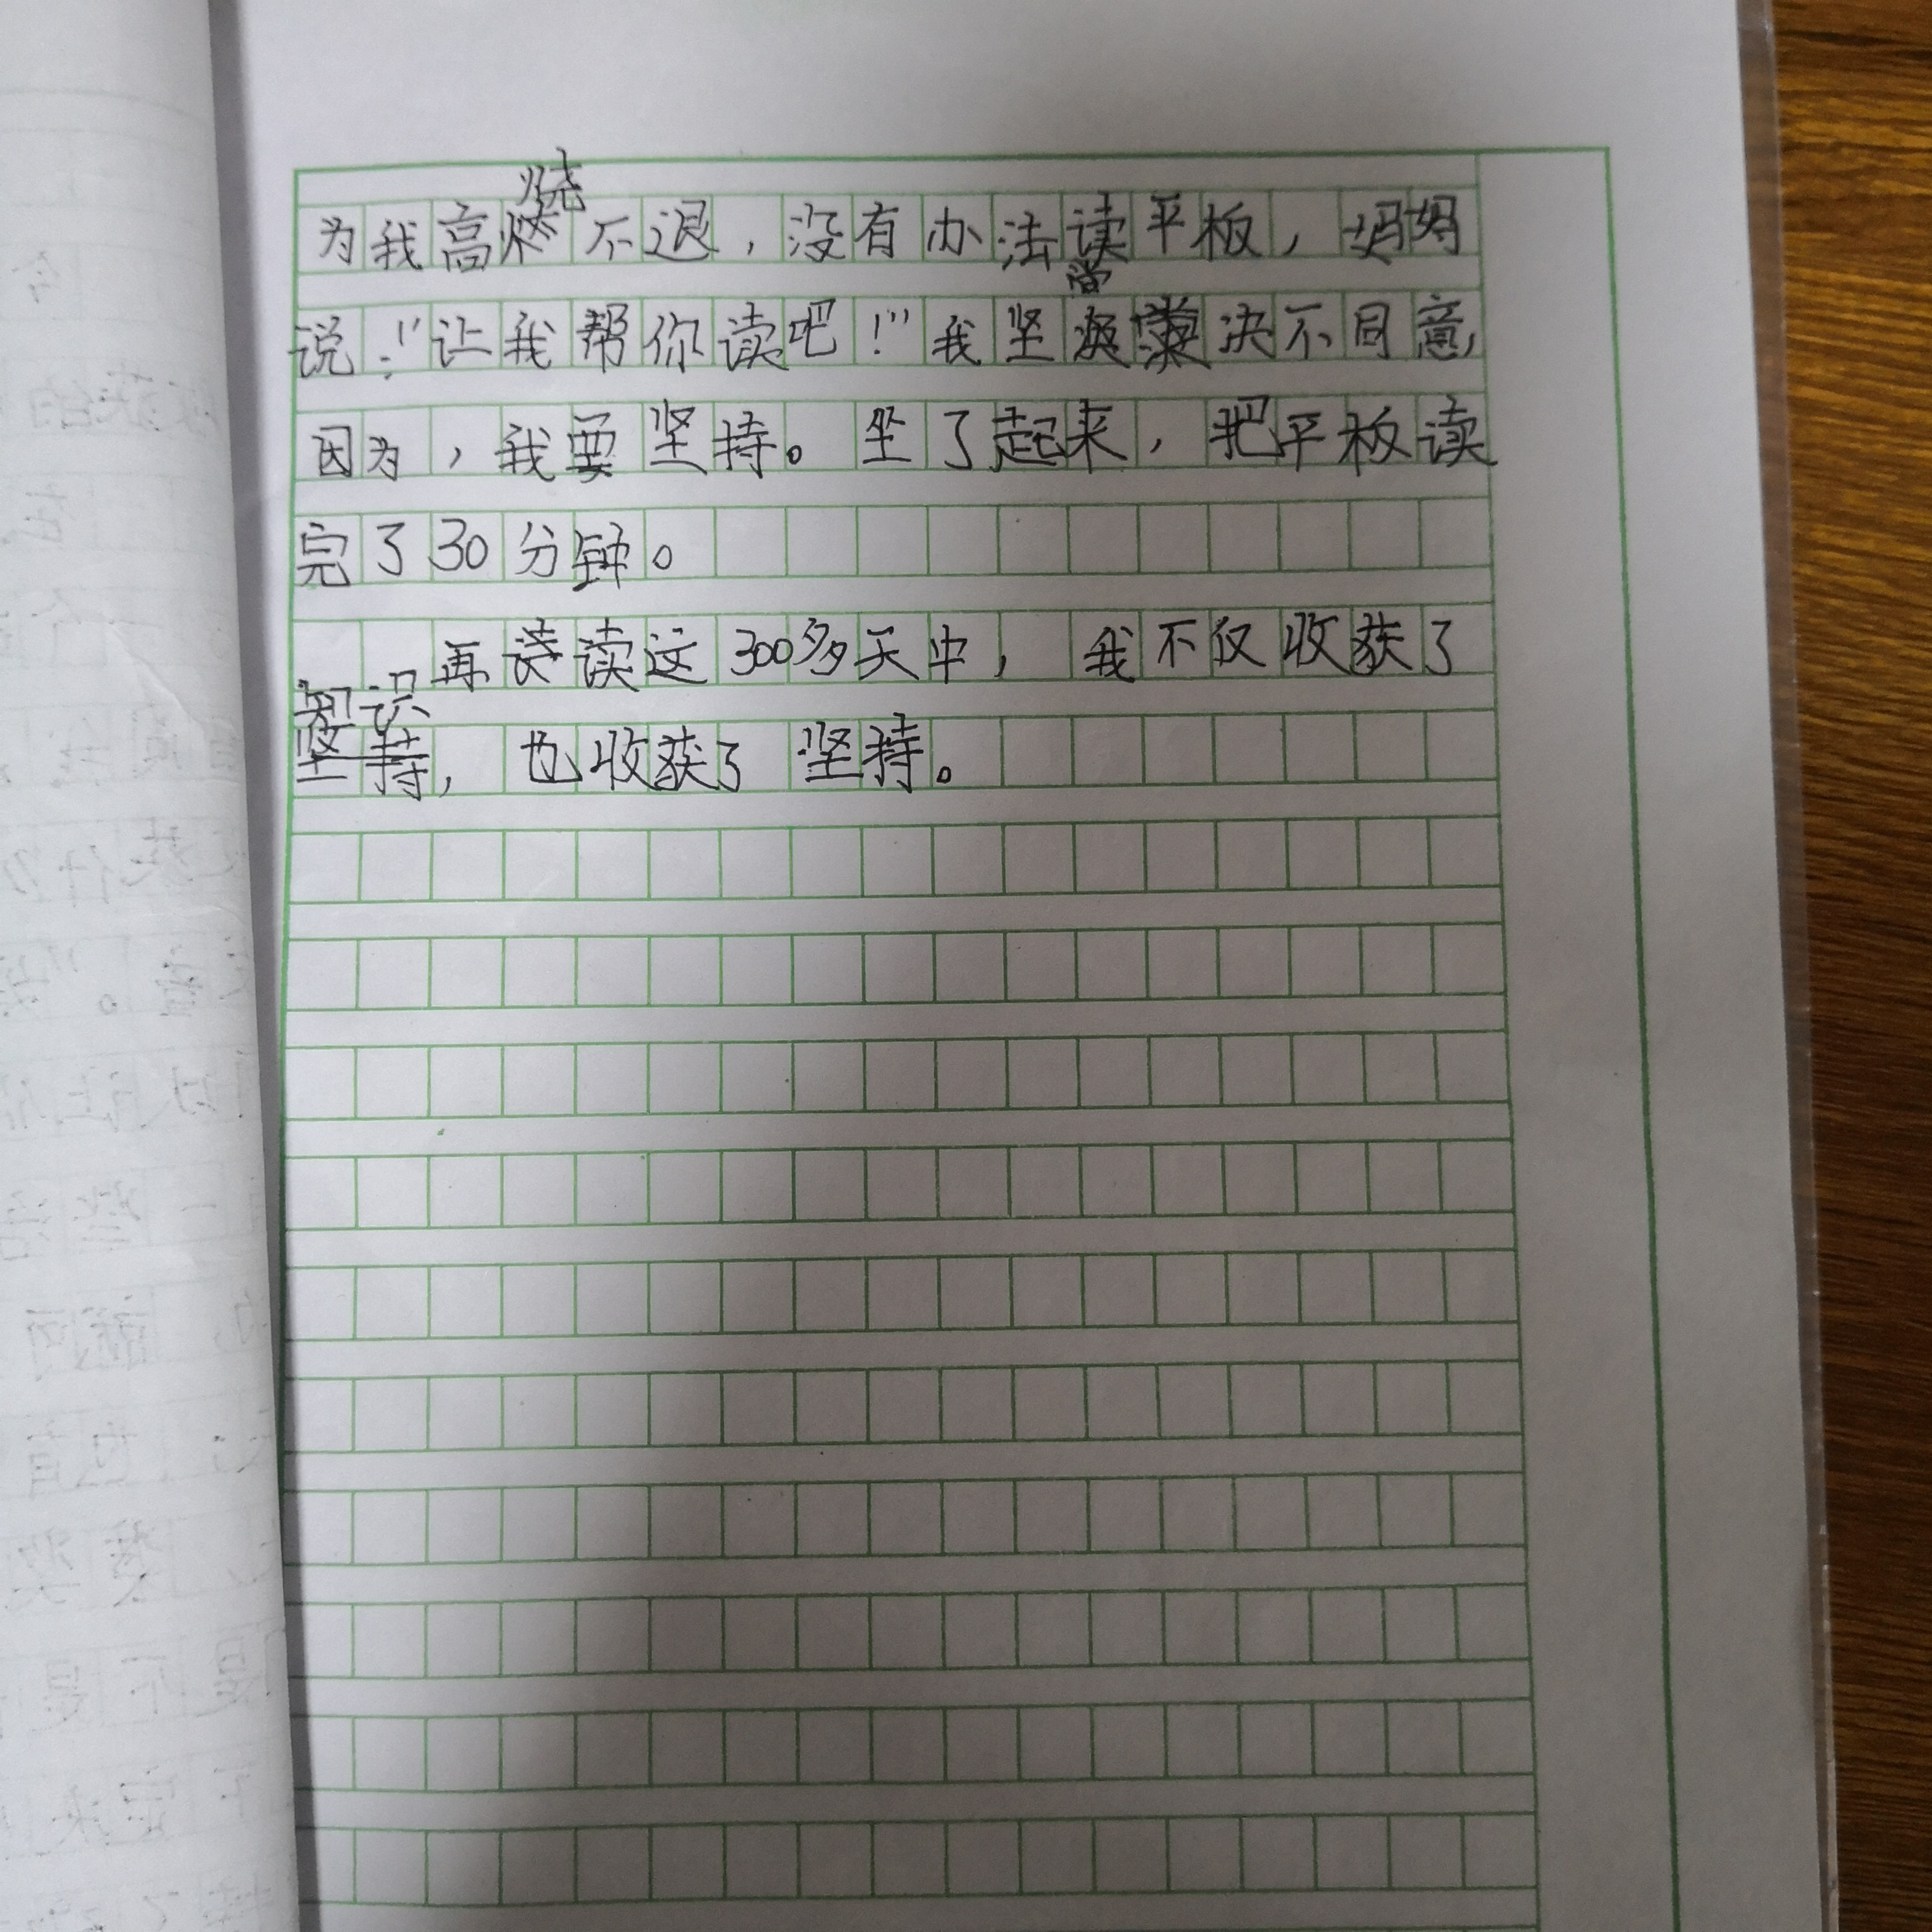 为我高烧不退，没有办法读平板，妈妈
说："让我帮你读吧！"我坚决不同意，
因为，我要坚持。坐了起来，把平板读
完了30分钟。
再读这300多天中，我不仅收获了
知识，也收获了坚持。